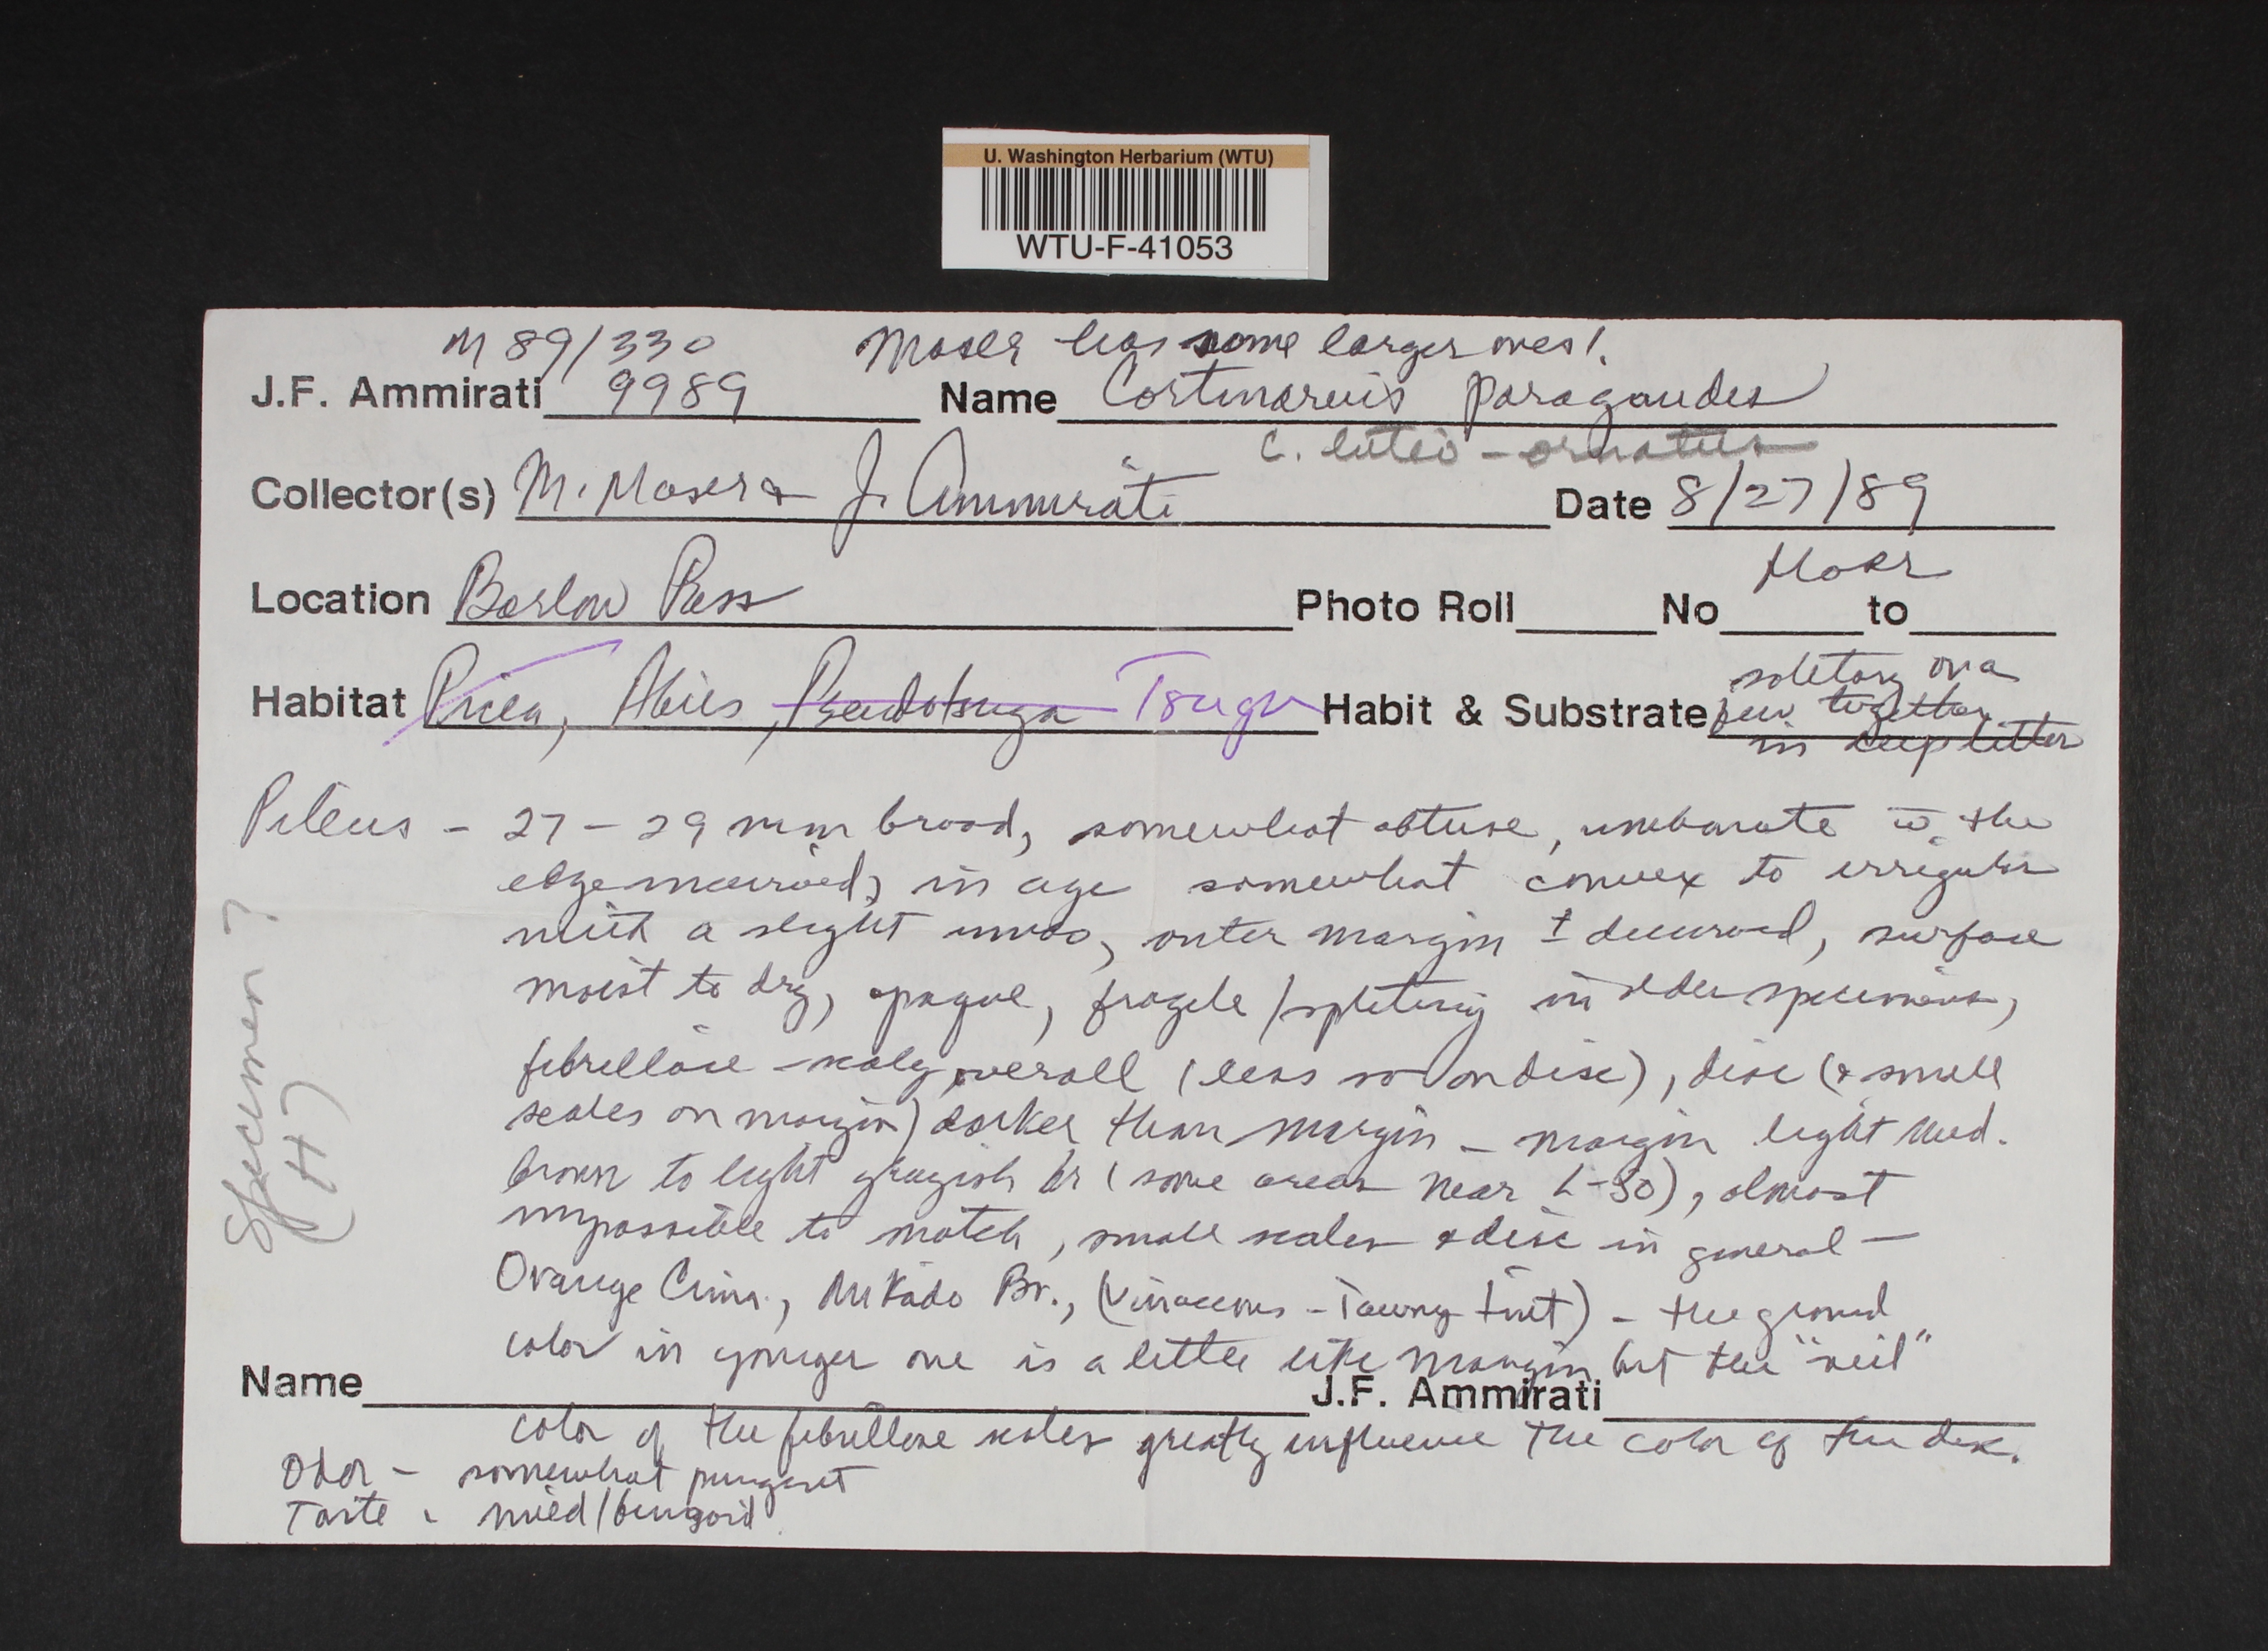 U. Washington Herbarium (WTU)
WTU-F-41053
M 89/330 Moser has some larger ones!
J.F. Ammirati 9989 Name Cortinarius paragaudes
C. luteo-ornatus
Collector(s) M. Moser & J. Ammirati Date 8/27/89
Location Barlow Pass Photo Roll No to
Habitat Picea, Abies, Pseudotsuga Tsuga Habit & Substrate solitary or a
few together
in deep litter
Pileus - 27-29 mm broad, somewhat obtuse, umbonate w̄ the
edge incurved, in age somewhat convex to irregular
with a slight umbo, outer margin ± decurved, surface
moist to dry, opaque, fragile/splitting in older specimens,
fibrillose-scaly overall (less so on disc), disc (& small
scales on margin) darker than margin - margin light med.
brown to light grayish br (some areas near L-50), almost
impossible to match, small scales & disc in general -
Orange Cinn., Mikado Br., (Vinaceous-Tawny tint) - the ground
color in younger one is a little like margin but the "veil"
Name J.F. Ammirati
color of the fibrillose scales greatly influence the color of the disc.
Odor - somewhat pungent
Taste - mild/fungoid
Specimen?
(H)